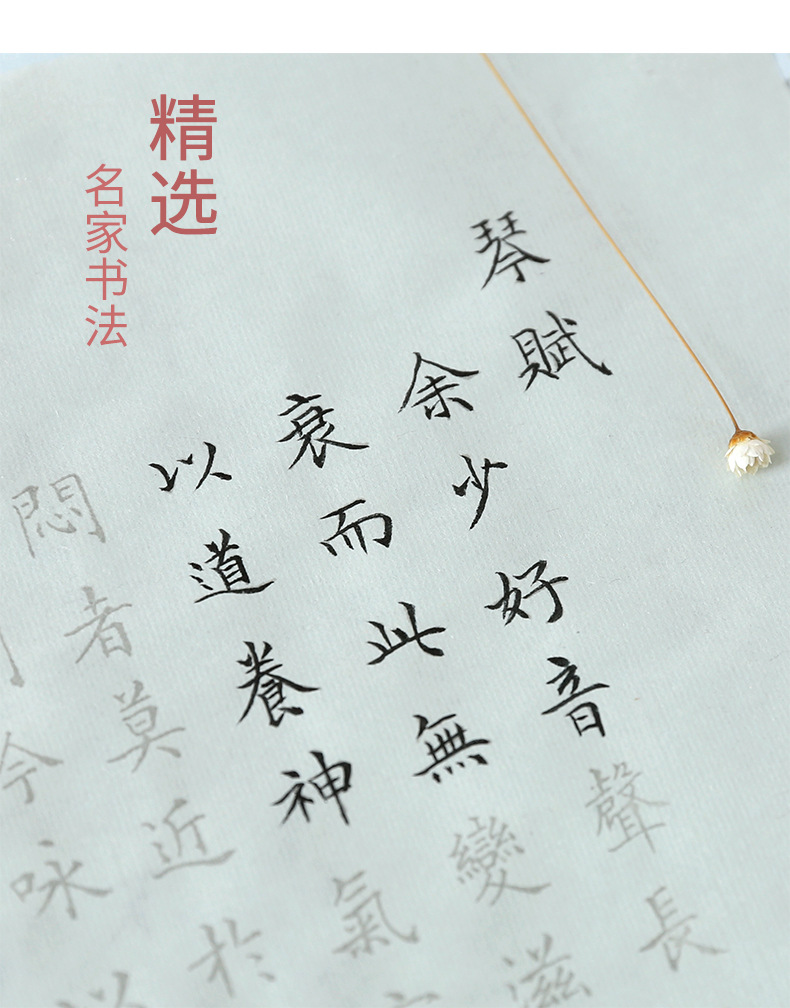 精选
名家书法
琴賦
余少好音聲長
衰而此無變滋
以道養神氣
悶者莫近於
今咏